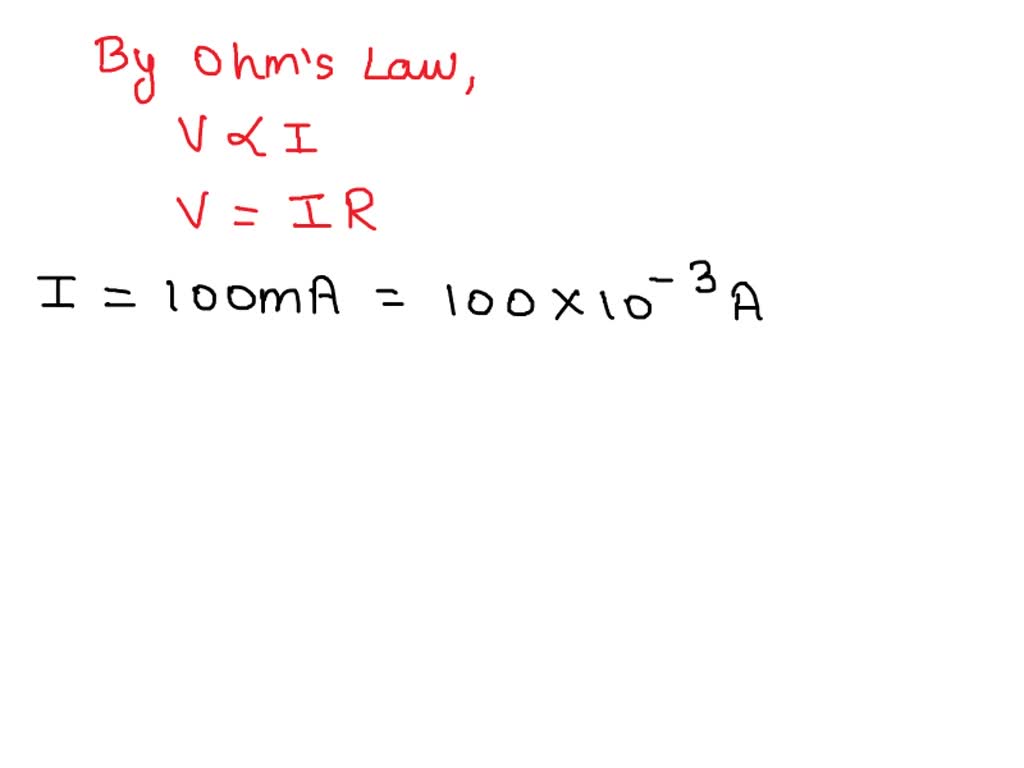 By Ohm's Law,
V ∝ I
V = IR
I = 100mA = 100 × 10⁻³ A